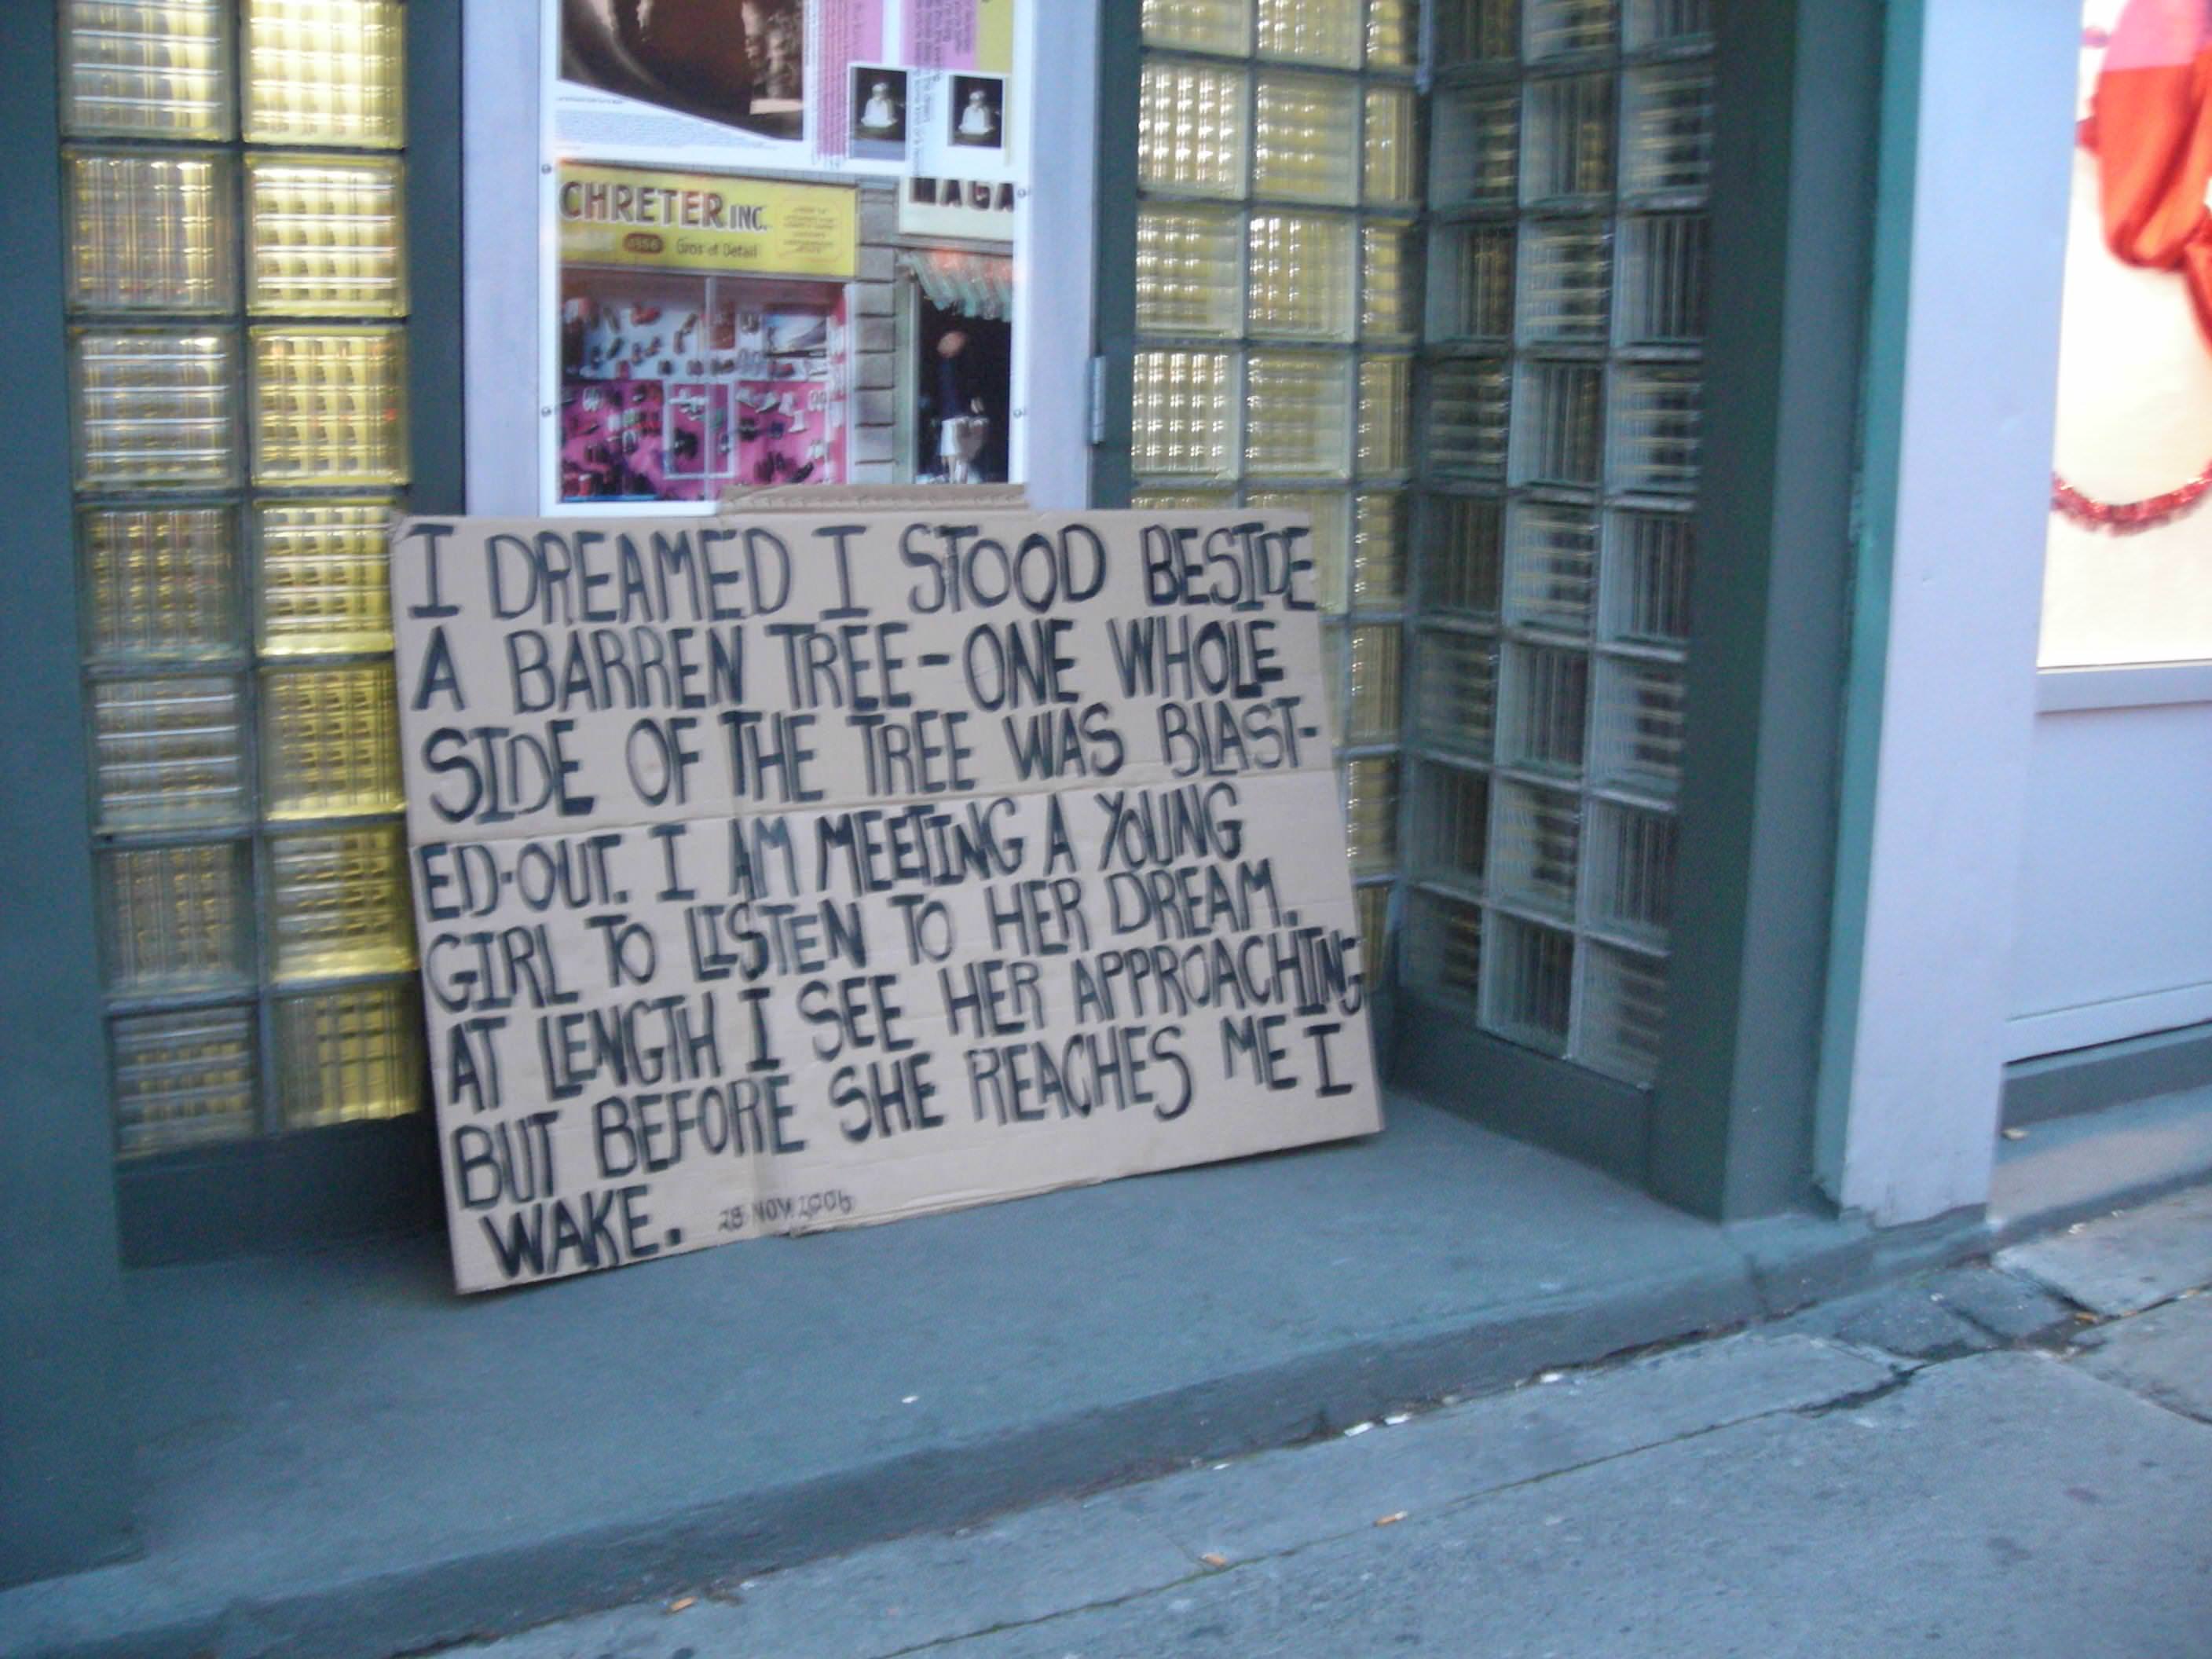 CHRETER INC.
4356 Gros et Detail
MAGA
I DREAMED I STOOD BESIDE
A BARREN TREE-ONE WHOLE
SIDE OF THE TREE WAS BLAST-
ED-OUT. I AM MEETING A YOUNG
GIRL TO LISTEN TO HER DREAM.
AT LENGTH I SEE HER APPROACHING
BUT BEFORE SHE REACHES ME I
WAKE. 28 NOV. 2006